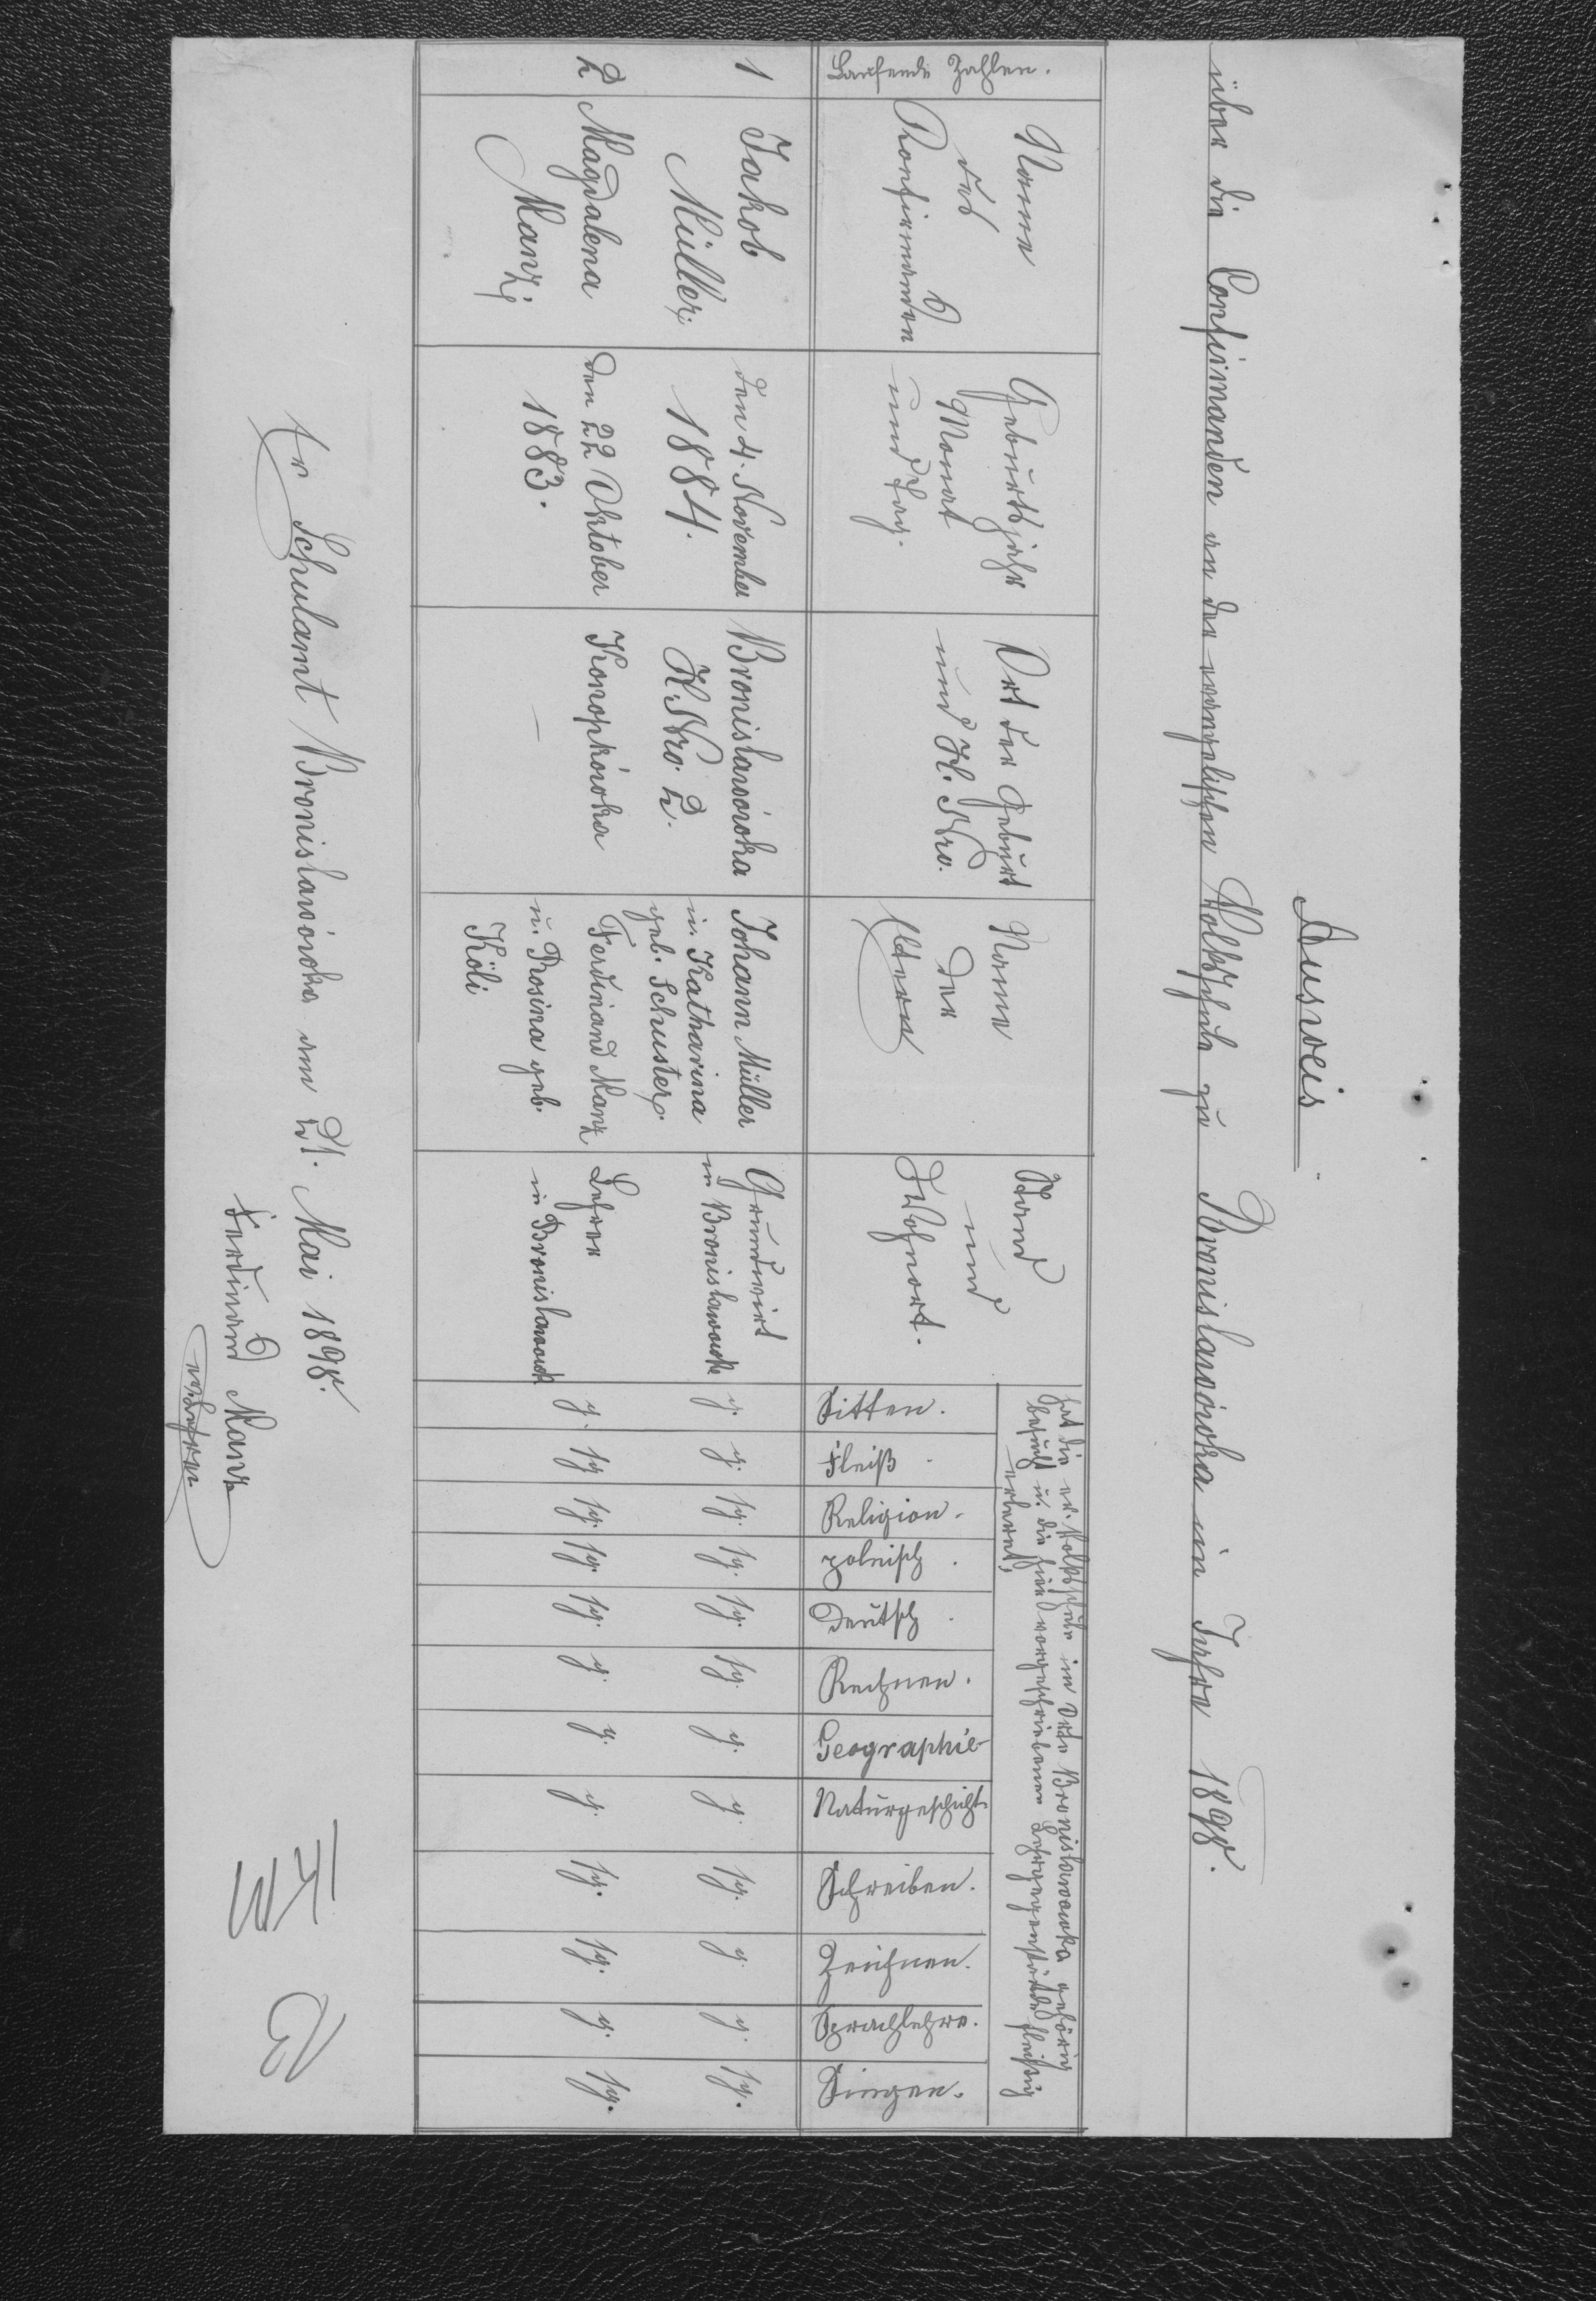 Ausweis
über die Confirmanden an der evangelischen Volksschule zu Bronislawówka im Jahre 1898.
Laufende Zahlen.
Name
des
Konfirmanden
Geburtsjahr
Monat
und Tag.
Ort der Geburt
und H. Nro.
Name
der
Eltern
Stand
und
Wohnort.
hat die ev. Volksschule im Orte Bronislawowka gehörig
besucht u. die hier vorgeschriebenen Lehrgegenstände fleißig
erlernt;
Sitten.
Fleiß
Religion.
polnisch.
Deutsch.
Rechnen.
Geographie
Naturgeschicht.
Schreiben.
Zeichnen.
Sprachlehre.
Singen.
1
Jakob
Müller;
den 4. November
1884.
Bronislawówka
H. Nro. 2.
Johann Müller
u. Katharina
geb. Schuster;
Grundwirt
in Bronislawowka
g. g. sg. sg. sg. sg. g. g. sg. g. g. sg.
2
Magdalena
Manz;
den 22 Oktober
1883.
Konopkówka
–
Ferdinand Manz
u. Rosina geb.
Köli
Lehrer
in Bronislawowk
g. sg sg. sg. sg. g. g. g. sg. sg. g. sg.
Schulamt Bronislawówka am 21. Mai 1898.
Ferdinand Manz